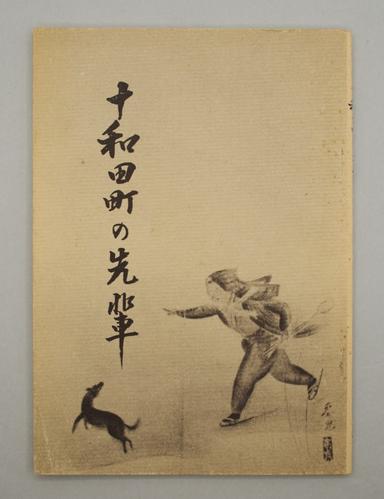 十和田町の先輩